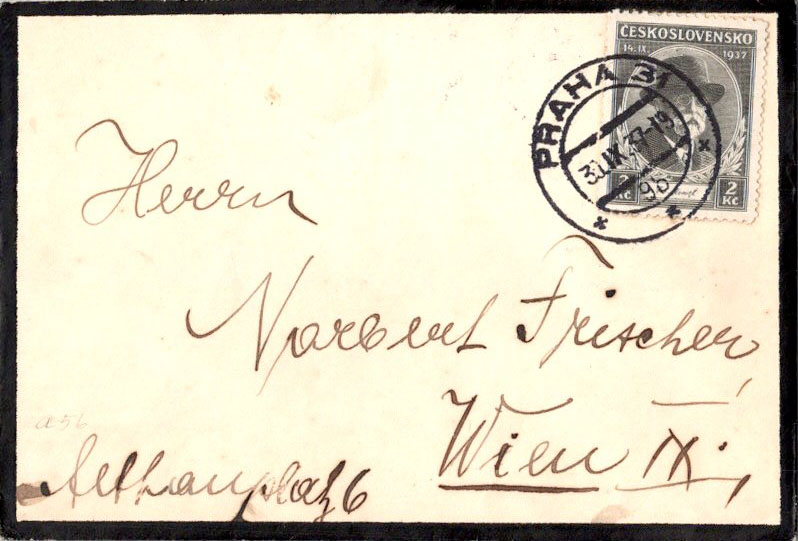 ČESKOSLOVENSKO
14.IX. 1937
PRAHA 31
30.IX.37-19
9b
2 Kč 2 Kč
Herrn
Norbert Frischer,
Wien IX.,
Althanplatz 6
a56